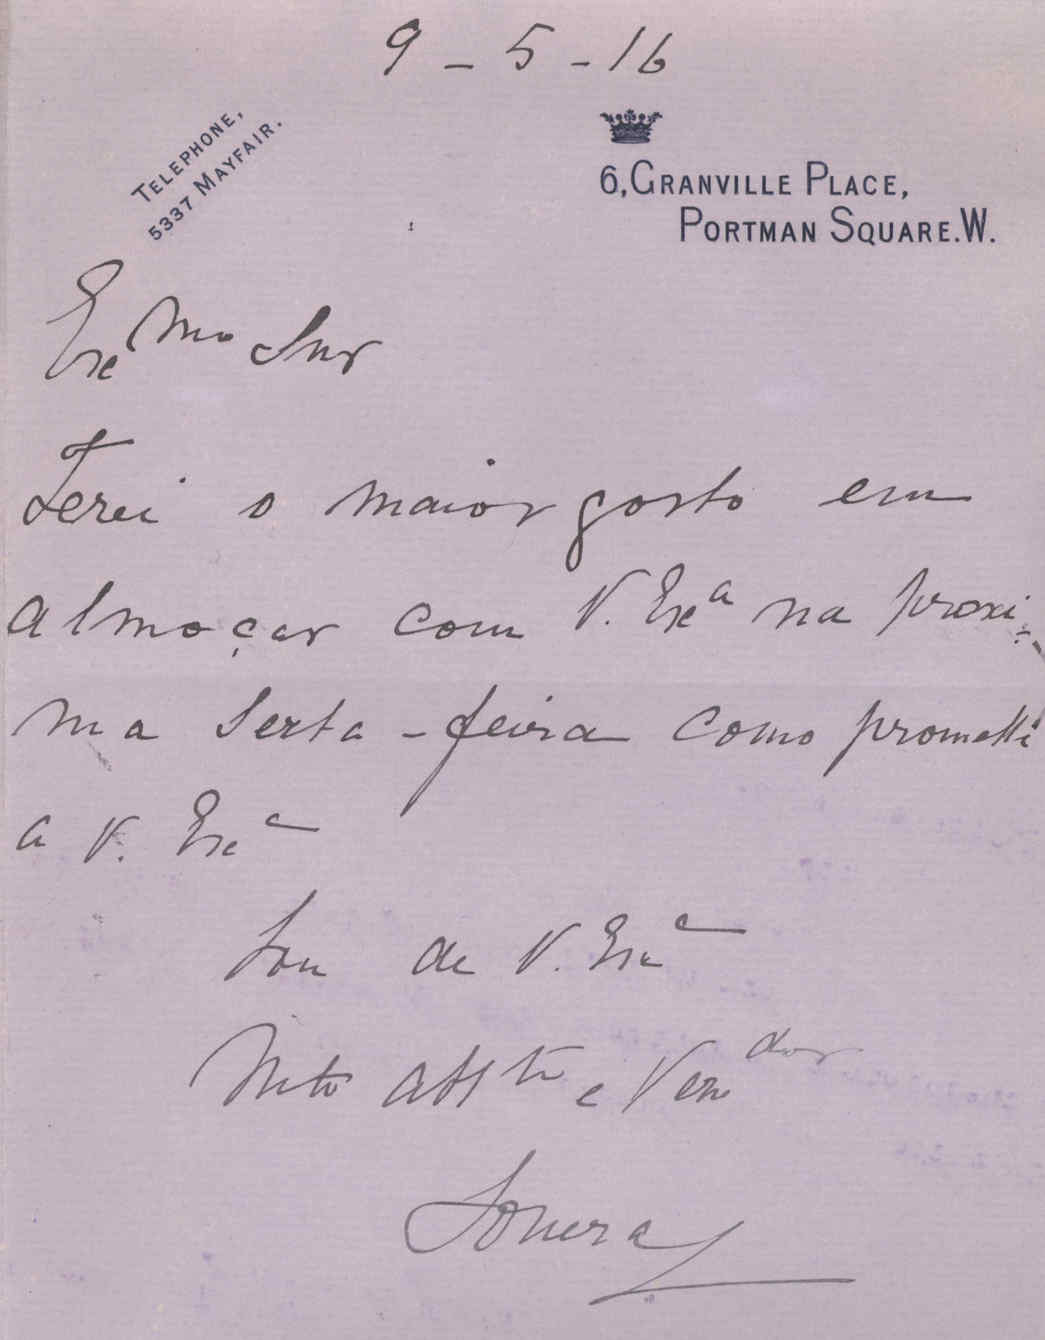 9 - 5 - 16
TELEPHONE,
5337 MAYFAIR.
6, GRANVILLE PLACE,
PORTMAN SQUARE. W.
Exc mo Snr
Terei o maior gosto em
almoçar com V. Exª na proxi-
ma sexta-feira como prometti
a V. Exª
Sou de V. Exª
Mto attto e Vendor